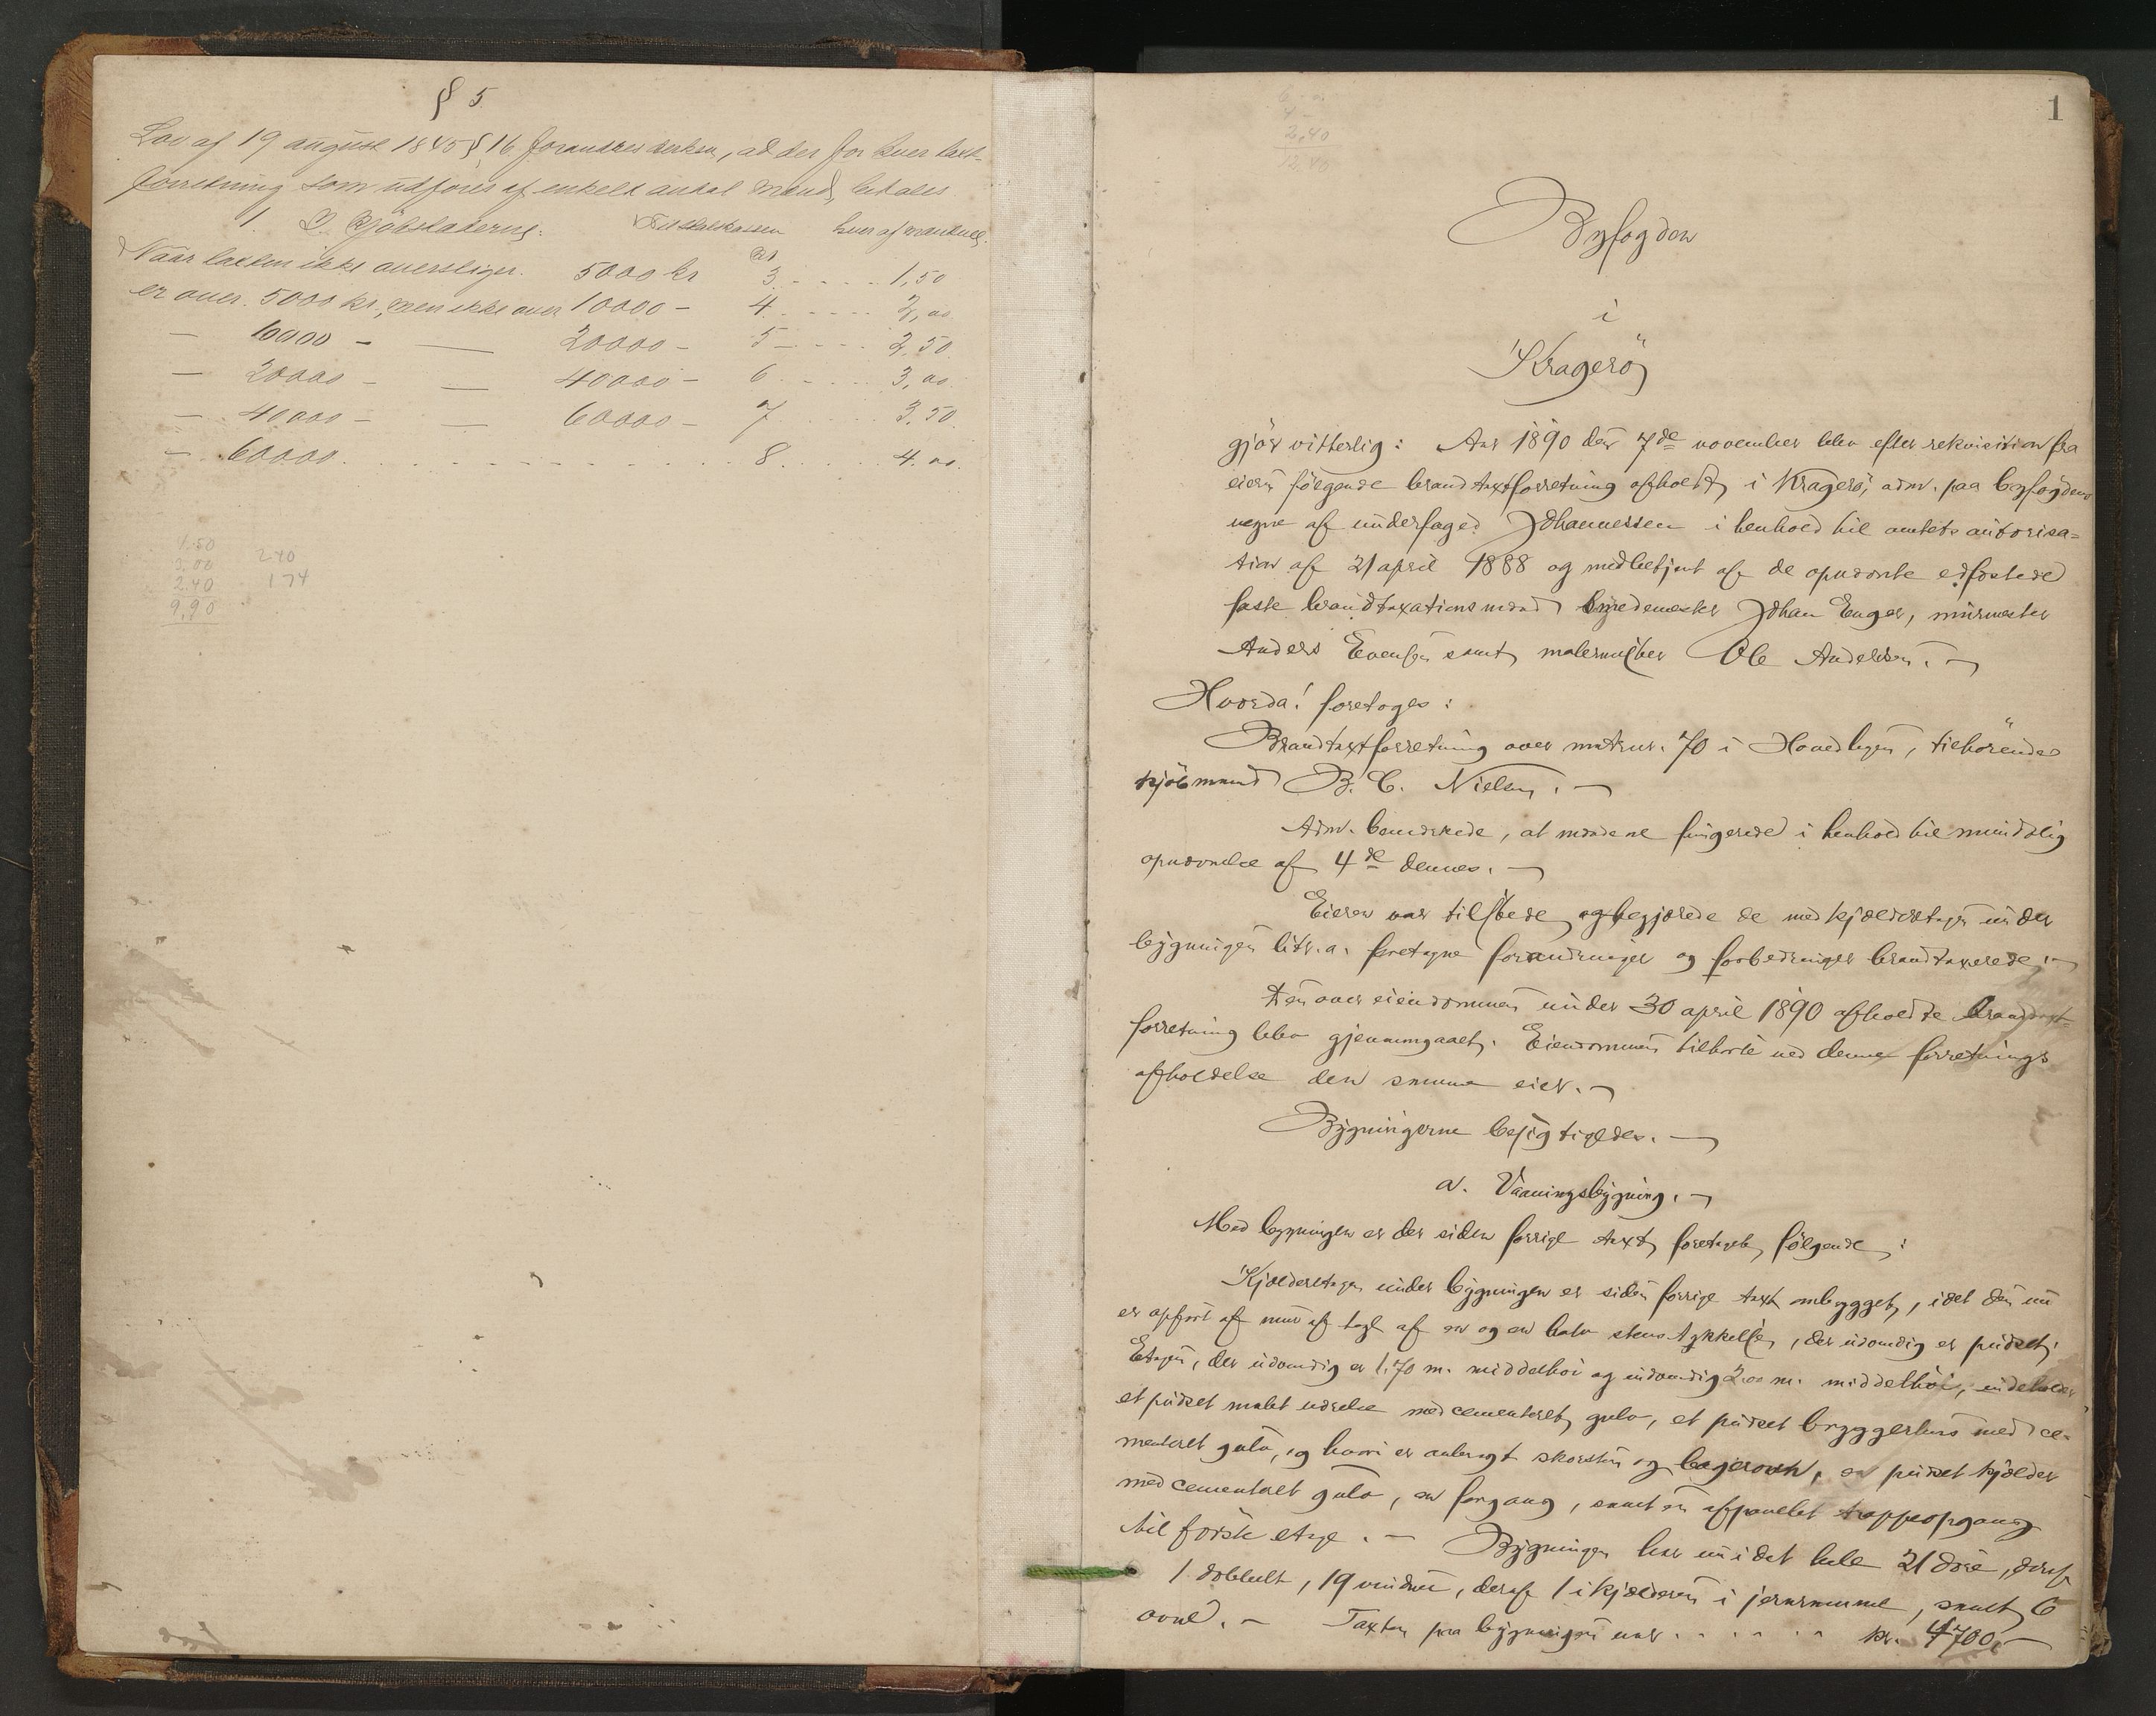 § 5.
Lov af 19 august 1845 § 16. forandres derhen, at der for hver taxt-
forretning som udføres af enkelt antal mænd, betales
1. I Kjøbstæderne: Til Statskassen hver af mændene.
Naar taxten ikke overstiger. 5000 kr kr 3. - - - - 1,50
er over. 5000 kr., men ikke over 10000 - 4. - - - - 2,00
— 10000 - — 20000 - 5 - - - - 2,50.
— 20000 - — 40000 - 6 - - - - 3,00.
— 40000 - — 60000 - 7 - - - - 3,50.
— 60000. - - - - - - - - 8. - - - - 4.00.
4.50
3.00 240
2.40 174
9.90
1
2.40
12.40
Byfogden
i
Kragerö
gjör vitterlig: Aar 1890 den 7de november blev efter rekvisition fra
eieren fölgende brandtaxtforretning afholdt i Kragerö, adm. paa byfogdens
vegne af underfoged Johannessen i henhold til amtets autorisa=
tion af 21 april 1888 og medbetjent af de opnævnte edfæstede
faste brandtaxationsmænd smedemester Johan Enger, murmester
Anders Evensen samt malermester Ole Andersen. —
Hvorda! foretoges:
Brandtaxtforretning over matrnr. 70 i Hovedbyen, tilhörende
kjöbmand B. C. Nielsen. —
Adm. bemærkede, at mændene fungerede i henhold til mundtlig
opnævnelse af 4de dennes. —
Eieren var tilstede og begjærede de med kjælderetagen under
bygningen litr. a. foretagne forandringer og forbedringer brandtaxerede. —
Den over eiendommen under 30 april 1890 afholdte brandtaxt=
forretning blev gjennemgaaet. Eiendommen tilhörte ved denne forretnings
afholdelse den samme eier. —
Bygningerne besigtigedes. —
a. Vaaningsbygning. —
Med bygningen er der siden forrige taxt foretaget fölgende:
Kjælderetagen under bygningen er siden forrige taxt ombygget, idet den nu
er opfört af mur af tegl af en og en halv stens tykkelse, der udvendig er pudset.
Etagen, der udvendig er 1.70 m. middelhöi og indvendig 2.00 m. middelhöi, indeholder
et pudset malet værelse med cementeret gulv, et pudset bryggerhus med ce-
menteret gulv, og hvori er anbragt skorsten og bagerovn, en pudset kjælder
med cementeret gulv, en forgang, samt en afpanelet trappeopgang
til förste etage. — Bygningen har nu i det hele 21 döre, deraf
1 dobbelt, 19 vinduer, deraf 1 i kjælderen i jernramme, samt 6
ovne. — Taxten paa bygningen var . . . . . . kr. 4700, —